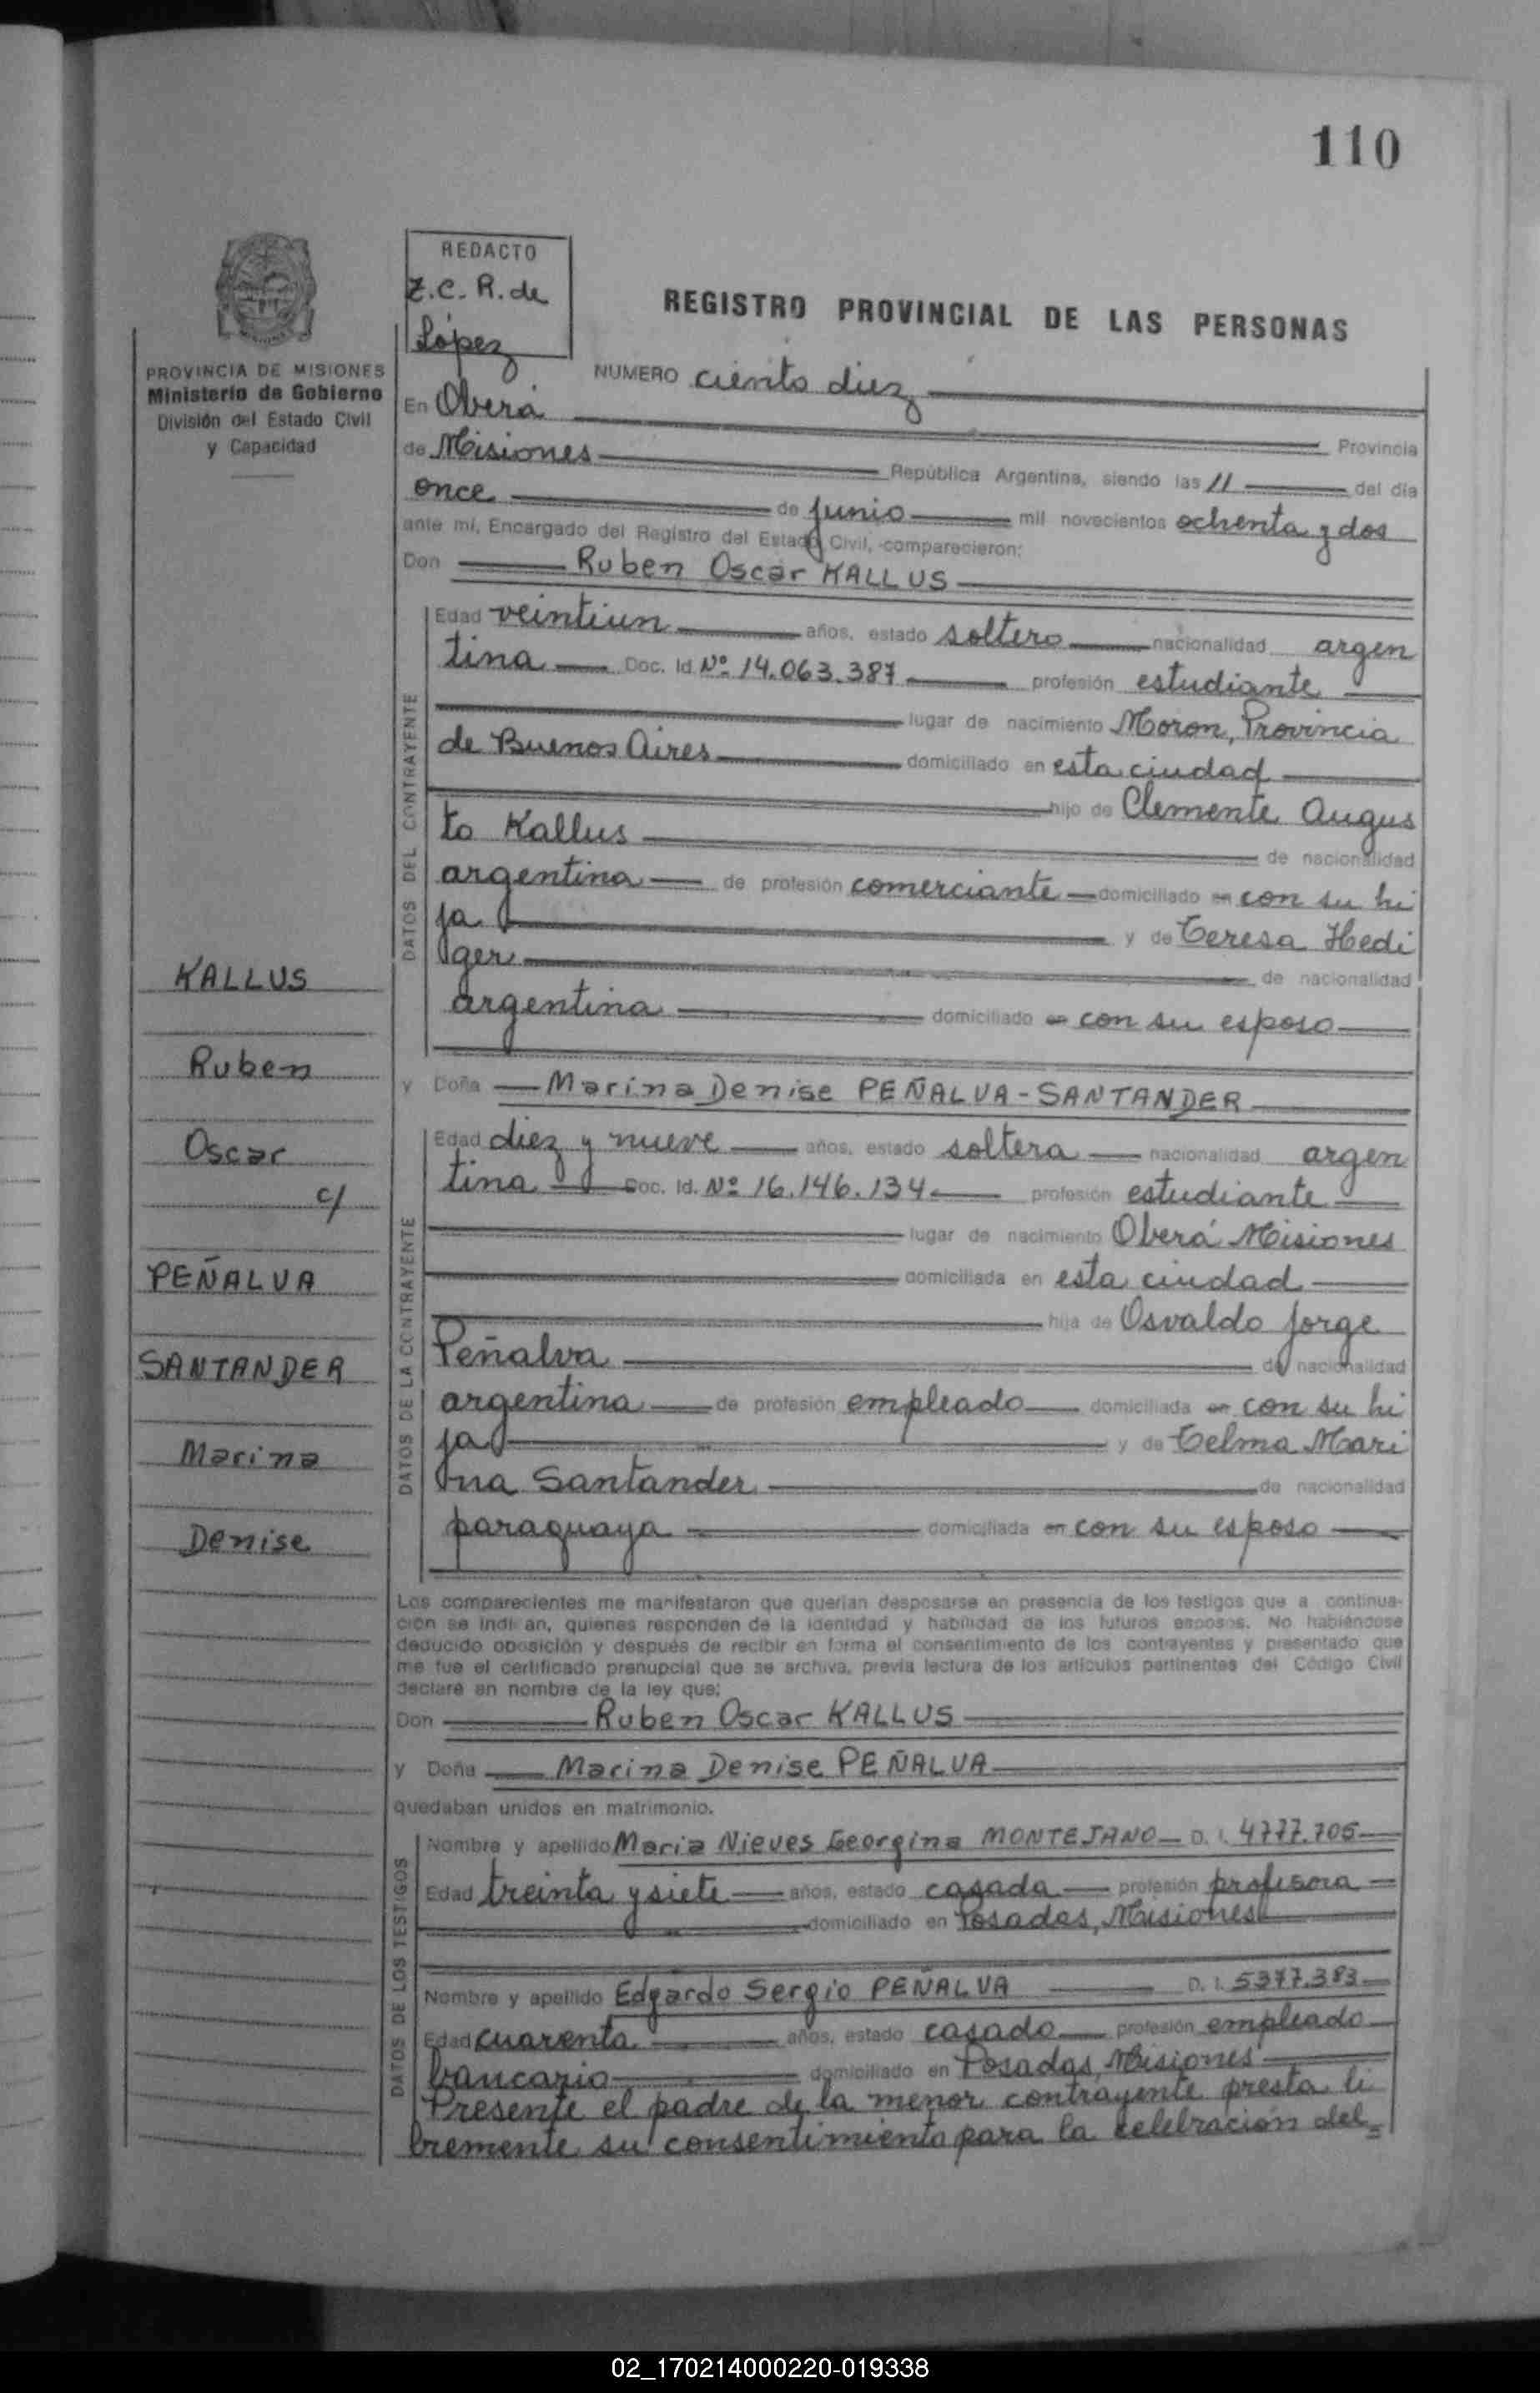 110
REDACTO
Z.C. R. de
López
REGISTRO PROVINCIAL DE LAS PERSONAS
PROVINCIA DE MISIONES
Ministerio de Gobierno
División del Estado Civil
y Capacidad
NUMERO ciento diez
En Oberá Provincia
de Misiones República Argentina, siendo las 11 del día
once de junio mil novecientos ochenta y dos
ante mí, Encargado del Registro del Estado Civil, comparecieron:
Don Ruben Oscar KALLUS
DATOS DEL CONTRAYENTE
Edad veintiun años, estado soltero nacionalidad argen
tina Doc. Id. Nº 14.063.387 profesión estudiante
lugar de nacimiento Moron, Provincia
de Buenos Aires domiciliado en esta ciudad
hijo de Clemente Augus
to Kallus de nacionalidad
argentina de profesión comerciante domiciliado en con su hi
ja y de Teresa Hedi
ger de nacionalidad
argentina domiciliado en con su esposo
y Doña Marina Denise PEÑALVA-SANTANDER
DATOS DE LA CONTRAYENTE
Edad diez y nueve años, estado soltera nacionalidad argen
tina Doc. Id. Nº 16.146.134 profesión estudiante
lugar de nacimiento Oberá Misiones
domiciliada en esta ciudad
hija de Osvaldo Jorge
Peñalva de nacionalidad
argentina de profesión empleado domiciliada en con su hi
ja y de Telma Mari
na Santander de nacionalidad
paraguaya domiciliada en con su esposo
KALLUS
Ruben
Oscar
c/
PEÑALVA
SANTANDER
Marina
Denise
Los comparecientes me manifestaron que querían desposarse en presencia de los testigos que a continua-
ción se indi an, quienes responden de la identidad y habilidad de los futuros esposos. No habiéndose
deducido oposición y después de recibir en forma el consentimiento de los contrayentes y presentado que
me fue el certificado prenupcial que se archiva, previa lectura de los artículos pertinentes del Código Civil
declaré en nombre de la ley que:
Don Ruben Oscar KALLUS
y Doña Marina Denise PEÑALVA
quedaban unidos en matrimonio.
DATOS DE LOS TESTIGOS
Nombre y apellido Maria Nieves Georgina MONTEJANO D. I. 4777.705
Edad treinta y siete años, estado casada profesión profesora
domiciliado en Posadas, Misiones
Nombre y apellido Edgardo Sergio PEÑALVA D. I. 5377.383
Edad cuarenta años, estado casado profesión empleado
bancario domiciliado en Posadas, Misiones
Presente el padre de la menor contrayente presta li
bremente su consentimiento para la celebración del=
02_170214000220-019338